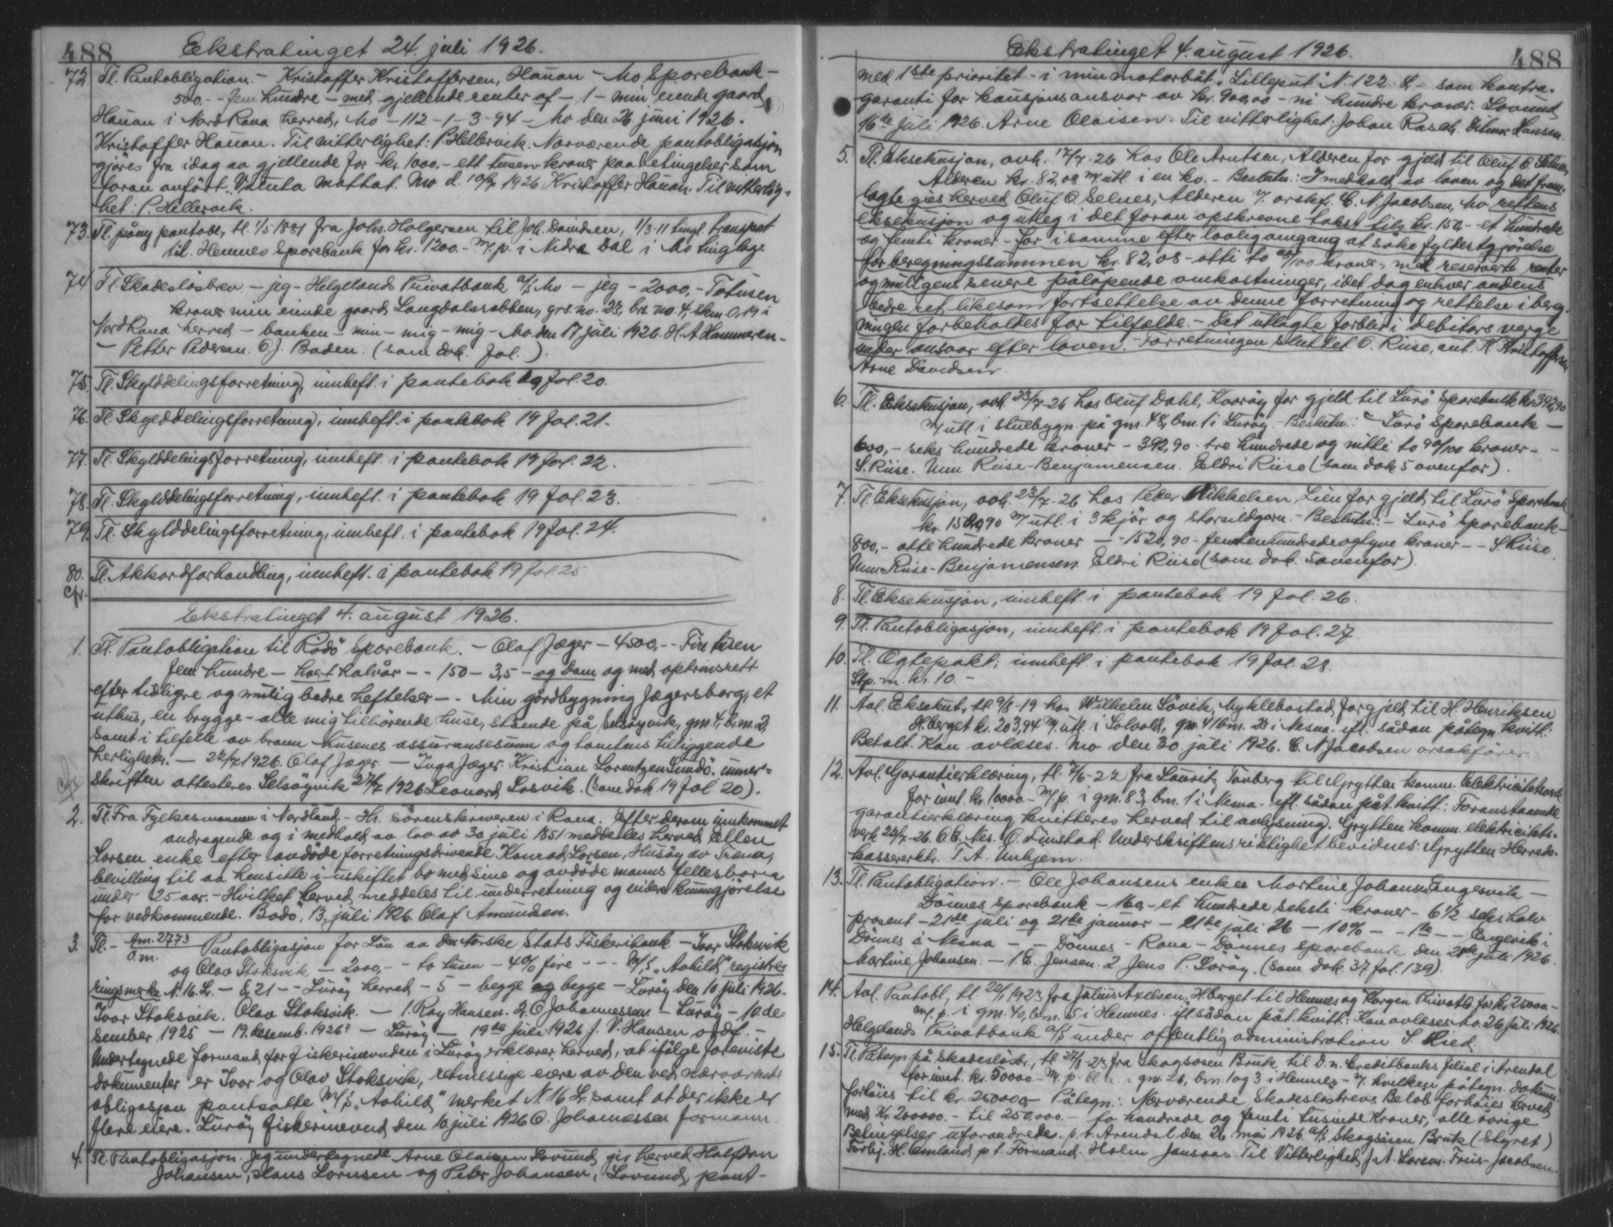 488
Ekstratinget 24. juli 1926.
72. Tl. Pantobligation - Kristoffer Kristoffersen, Hauan - Mo Sporebank -
500.- fem hundre - med gjellende renter af - 1 - min eiende gaard
Hauan i Nord Rana herred, Mo - 112 - 1 - 3 - 94 - Mo den 26 juni 1926.
Kristoffer Hauan. Til vitterlighet: P. Hellervik. Nærværende pantobligasjon
gjøres fra idag av gjellende for kr. 1000.- ett tusen kroner paa betingelser som
foran anført. Valuta mottat. Mo d. 10/7 1926 Kristoffer Hauan. Til vitterlig-
het: P. Hellervik.
73. Tl. påny pantobl., tl. 1/5 1891 fra Johs. Holgersen til Joh. Davidsen, 1/3-11 tingl. transport
til Hemnes Sporebank for kr. 1200.- m/p. i Nedre Dal i Mo tinglag.
74. Tl. Skadesløsbrev - jeg - Helgelands Privatbank a/s Mo - jeg - 2000,- Totusen
kroner min eiende gaard Langdalsrabben, grs. no. 23, brs. no. 4, skm. 0,19 i
Nord Rana herred - banken - min - mig - mig - Mo den 17 juli 1926. H. A. Hammeren -
- Petter Pedersen. O. J. Baden. (som dok. fol. ).
75. Tl. Skylddelingsforretning, innheft. i pantebok 19 fol. 20.
76. Tl. Skylddelingsforretning, innheft. i pantebok 19 fol. 21.-
77. Tl. Skylddelingsforretning, innheft. i pantebok 19 fol. 22.
78. Tl. Skylddelingsforretning, innheft. i pantebok 19 fol. 23.
79. Tl. Skylddelingsforretning, innheft. i pantebok 19 fol. 24.
80. Tl. Akkordforhandling, innheft. i pantebok 19 fol. 25
Cfr.
Ekstratinget 4. august 1926.
1. Tl. Pantobligation til Rødø Sporebank. - Olaf Jæger - 4500,- - Fire tusen
fem hundre - hvert halvår - - 150 - 3,5 - og dom og med optrinsrett
efter tidligre og mulig bedre heftelser - - Min gårdbygning Jægersborg, et
uthus, en brygge - alle mig tilhørende huse, stående på Selsøyvik, gm. 4, b.m. 2,
samt i tilfelle av brann husenes assuransesum og tomtens tilliggende
herligheter. - 22/7 1926. Olaf Jæger. - Inga Jæger. Kristian Lorentzen Sundø. Unner-
skriften attesteres Selsøyvik 27/7 1926 Leonard Losvik. (som dok. 19 fol. 20).
2. Tl. Fra Fylkesmannen i Nordland - Hr. sorenskriveren i Rana. Efter derom innkommet
andragende og i medhold av lov av 30 juli 1851 meddeles herved Ellen
Lorsen enke efter avdøde forretningsdrivende Konrad Lorsen, Husøy av Træna,
bevilling til aa hensitte i uskiftet bo med sine og avdøde manns fellesbarn
under 25 aar. - Hvilket herved meddeles til underretning og videre kunngjørelse
for vedkommende. Bodø, 13. juli 1926. Olaf Amundsen.
3. Tl. - Am. 2773 O.m. Pantobligasjon for Lån av den norske Stats Fiskeribank - Ivar Stoksvik
og Olav Stoksvik - 2000,- - to tusen - 4% fire - - - M/S "Ashild" registre
ringsmerke N. 16. Lr. - & 21 - - Lurøy herred - 5 - begge og begge - Lurøy den 10 juli 1926.
Ivar Stoksvik. Olav Stoksvik. - 1. Ray Hansen. 2. O. Johannessen - Lurøy - 10 de
sember 1925 - 19. desemb. 1926? - Lurøy - 19de juli 1926 J. V. Hansen ordf. -
Undertegnede formand for fiskerinevnden i Lurøy erklærer herved, at ifølge foreviste
dokumenter er Ivar og Olav Stoksvik, retmessige eiere av den ved nærværende
obligasjon pantsatte M/S "Ashild" merket N. 16 Lr. samt at der ikke er
flere eiere. Lurøy fiskerinevnd den 10 juli 1926 O. Johannessen formann.
4. Tl. Pantobligasjon. Jeg undertegnede Arne Olaisen Lovund gir herved Halfdan
Johansen, Hans Lornsen og Peter Johansen, Lovund, pant-
Ekstratinget 4. august 1926.
488
med 1ste prioritet - i min motorbåt "Lilleput" N. 122. L. - som kontra-
garanti for kausjonsansvar av kr. 900,00 - ni hundre kroner. Lovund
16de juli 1926. Arne Olaisen. Til vitterlighet: Johan Rasch. Hansen.
5. Tl. Eksekusjon, avh. 17/7-26 hos Ole Arntsen, Alderen for gjeld til Oluf O. Selnes,
Alderen kr. 82,08 m/ utl. i en ko. - Beslutn.: I medhold av loven og det frem-
lagte gies herved Oluf O. Selnes, Alderen v/ orskf. C. N. Jacobsen, Mo rettens
eksekusjon og utleg i det foran opskrevne takst til kr. 150.- et hundrede
og femti kroner - for i samme efter lovlig omgang at søke fyldestgjørelse
for beregningssummen kr. 82,08 - otti to 08/100 kroner, med reserverte renter
og muligens senere påløpende omkostninger, i det dog enhver andens
bedre ret, likesom fortsettelse av denne forretning og rettelse i bereg-
ningen forbeholdes for tilfælde. - Det utlagte forblir i debitors verge
under ansvar efter loven. - Forretningen sluttet. O. Riise, ant. K. Kristoffersen,
Arne Davidsen.
6. Tl. Eksekusjon, avh. 23/7-26 hos Oluf Dahl, Kvarøy for gjeld til Lurø Sporebank kr. 392,90
m/ utl. i stuebygn. på gm. 48, bm. 1 i Lurøy. - Beslutn.: - Lurø Sporebank -
600,- seks hundrede kroner - 392,90 - tre hundrede og nitti to 90/100 kroner - -
S. Riise. Unn Riise-Benjamensen. Eldri Riise (som dok. 5 ovenfor).
7. Tl. Eksekusjon, avh. 23/7-26 hos Peter Mikkelsen, Lien for gjeld til Lurø Sporebank
kr. 1520,90 m/ utl. i 3 kjør og storsildgarn. - Beslutn.: - Lurø Sporebank -
800,- otte hundrede kroner - - 1520,90 - femtenhundredeogtyve kroner - - S. Riise.
Unn Riise-Benjamensen Eldri Riise (som dok. 5 ovenfor).
8. Tl. Eksekusjon, innheft. i pantebok 19 fol. 26.
9. Tl. Pantobligasjon, innheft. i pantebok 19 fol. 27.
10. Tl. Ægtepakt, innheft. i pantebok 19 fol. 28.
Stp. m. kr. 10.-
11. Avl. Eksekut., tl. 9/8-19 hos Wilhelm Løvik, Myklebostad for gjeld til H. Henriksen
Hberget kr. 203,94 m/ utl. i Solvold, gm. 41 bm. 20 i Nesna. ifl. sådan påtegn. kvitt.:
Betalt. Kan avlæses. Mo den 30. juli 1926. C. N. Jacobsen orsakfører.
12. Avl. Garantierklæring, tl. 7/6-22 fra Lauritz Tonberg til Grytten komm. Elektricitetsverk
for innt. kr. 10000.- m/p. i gm. 83, bm. 1 i Nesna. - ifl. sådan påt. kvitt.: Foranstaaende
garantierklæring kvitteres herved til avlysning. Grytten komm. elektricitets-
verk 22/7-26. O. B. Nes. O. Finstad. Underskriftens riktighet bevidnes: Grytten Herreds-
kassererktr. T. A. Unhjem.
13. Tl. Pantobligation. - Ole Johansens enke Martine Johansen Engesvik -
Dønnes Sporebank - 160,- et hundrede seksti kroner - 6½ seks halv
prosent - 21de juli og 21de januar - 21de juli 26 - 10% - - 1ste - - Engesvik i
Dønnes i Nesna - - Dønnes - Rana - Dønnes Sporebank den 21de juli 1926.
Martine Johansen. - 1. E. Jensen. 2 Jens P. Sørøy. (som dok. 37 fol. 139).
14. Avl. Pantobl., tl. 22/1 1923 fra Julius Axelsen, Hberget til Hemnes og Korgen Privatb. for kr. 25000.-
m/p. i gm. 40, bm. 5 i Hemnes. ifl. sådan påt. kvitt.: Kan avlæses. Mo. 26 juli 1926
Helgelands Privatbank a/s under offentlig administration S. Hied.
15. Tl. Påtegn. på skadesløsbr., tl. 27/8-23 fra Skogsøsen Bruk til D. n. Creditbanks filial i Arendal
for innt. kr. 50000.- m/p. bl. a. i gm. 26, bm. 1 og 3 i Hemnes - v/ hvilken påtegn. dokum.
forhøies til kr. 250000.- Påtegn.: Nærværende skadesløsbrevs Beløb forhøies herved
med kr. 200000.- til 250,000.- to hundrede og femti tusinde kroner, alle øvrige
Betingelser uforandrede. p.t. Arendal den 26 mai 1926 a/s Skogsøsen Bruk (Styret)
Torbj. H. Omland p.t. Formand. Holm Jansaas. Til Vitterlighed, J. A. Lorsen. Friis-Jacobsen.